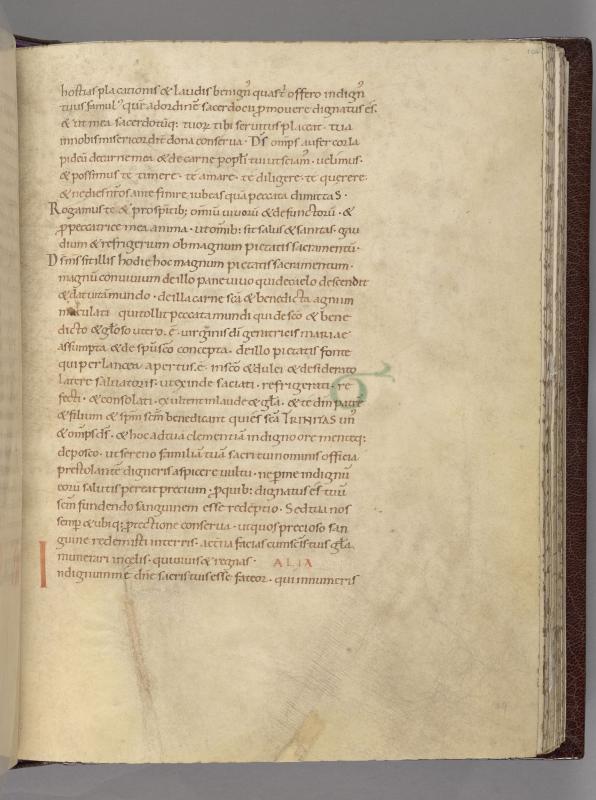 hostias placationis & laudis benign' quas t' offero indign'
tuus famul' que ad ordinē sacerdocii p̱movere dignatus es.
& ut mea sacerdotūq; tuoꝝ tibi servitus placeat. tua
in nobis misericordit̄ dona conserva. D̄s omp̄s aufer cor la
pideū de carne mea. & de carne popl̄i tui ut sciam. velimus.
& possimus te timere. te amare. te diligere. te querere.
& ne dies n̄ros ante finire iubeas quā peccata dimittas.
Rogamus te & pro spirītib; omniū vivorū & defunctorū. &
p̱ peccatrice mea anima. ut omīb; sit salus & sanitas. gau
dium & refrigerium ob magnum pietatis sacramentū.
D s̄ m̄s sit illis hodie hoc magnum pietatis sacramentum.
magnū convivium de illo pane vivo qui de caelo descendit
& dat vitā mundo. de illa carne sc̄a & benedicta agni in
maculati qui tollit peccata mundi qui de sc̄o & bene
dicto & gl̄oso utero. ē. virginis dī genitricis mariae
assumpta & de sp̄u sc̄o concepta. de illo pietatis fonte
qui per lancea apertus. ē. in sc̄o & dulci & desiderato
latere salvatoris. ut exinde saciati. refrigerati. re
fecti. & consolati. exultent in laude & gl̄a. & te dn̄m patrē
& filium & sp̄m sc̄m benedicant qui es sc̄a TRINITAS un'
& omp̄s d̄s. & hoc ad tua clementiā indigno ore menteq;
deposco. ut sereno familiā tuā sacri tui nominis officia
prestolantē digneris aspicere vultu. ne p̱ me indignū
eorū salutis pereat precium. p̱ quib; dignatus es tuū
sc̄m fundendo sanguinem esse redēptio. Sed tua nos
semp̱ & ubiq; p̱tectione conserva. ut quos precioso san
guine redemisti in terris. aet̄na facias cum sc̄is tuis gl̄a
munerari in celis. qui vivis & regnas. ALIA
Indignum m̄ dn̄e sacris tuis esse fateor. qui innumeris